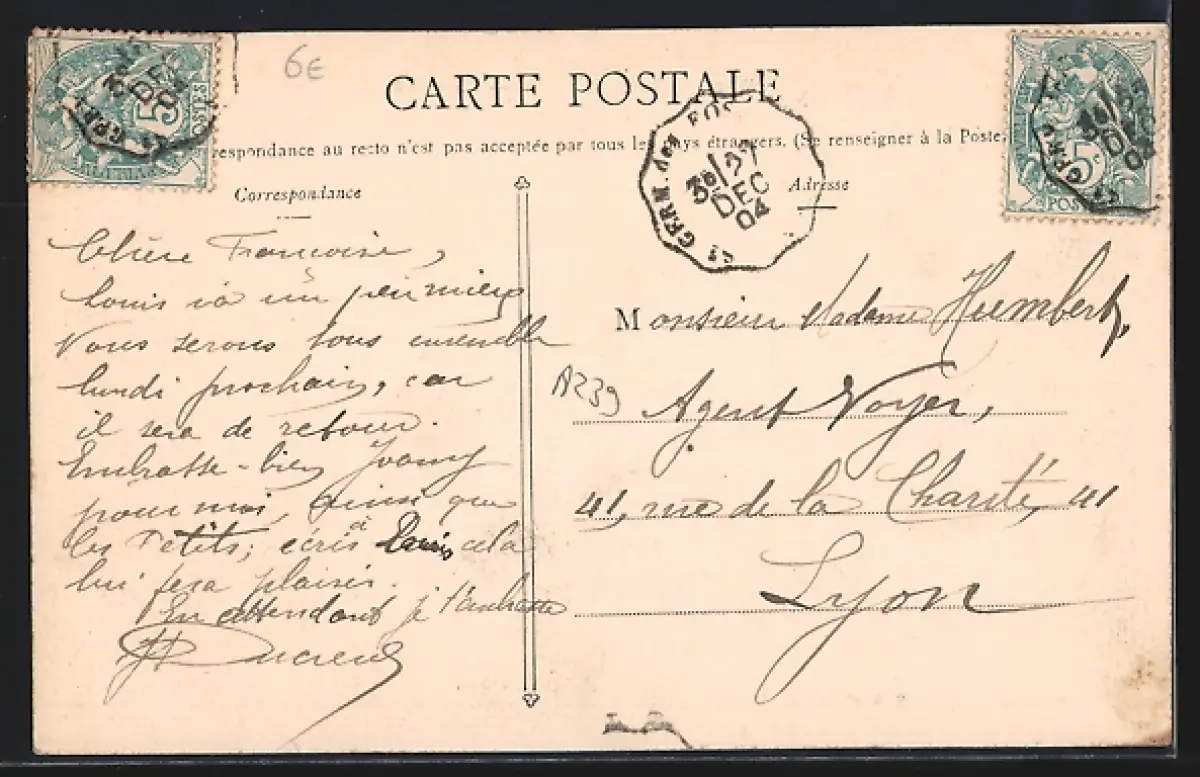 6€
CARTE POSTALE
respondance au recto n'est pas acceptée par tous les pays étrangers. (Se renseigner à la Poste
Correspondance
Adresse
Chère Francoise,
Louis va un peu mieux
Nous serons tous ensemble
lundi prochain, car
il sera de retour.
Embrasse-bien Joany
pour moi, ainsi que
les Petits; écris à Louis cela
lui fera plaisir.
En attendant je t'embrasse
Ducreux
Monsieur Madame Humbert,
A239
Agent Voyer,
41, rue de la Charité, 41
Lyon
ST GERM.
DEC
04
5
POSTES
DEC
04
5c
POSTES
DEC
04